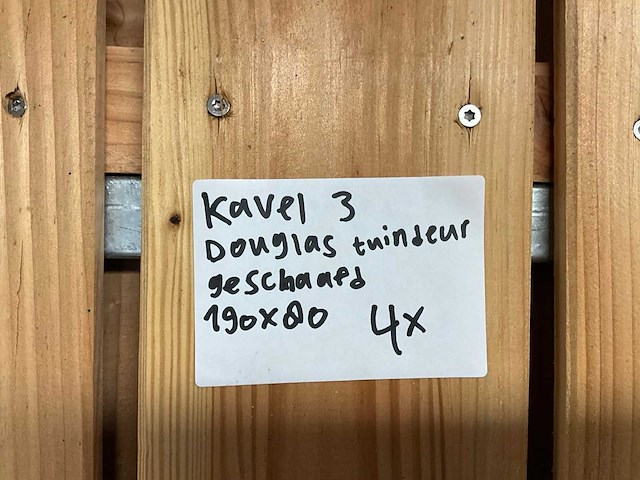 Kavel 3
Douglas tuindeur
geschaafd
190x80 4x